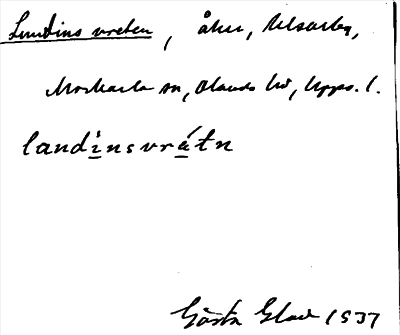 Lundins vreten, åker, Ulvarby,
Morkarla sn, Olands hd, Upps. l.
landinsvrátn
Gösta Elow 1937